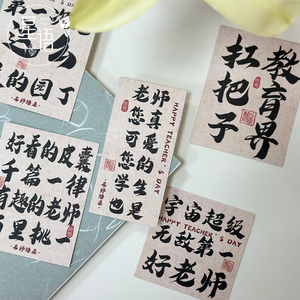 第一次
的园丁
教育界
扛把子
老师
您真
可爱
您的
学生
也是
HAPPY TEACHER'S DAY
好看的皮囊
千篇一律
有趣的老师
万里挑一
宇宙超级
TEACHER'S DAY
无敌第一
好老师